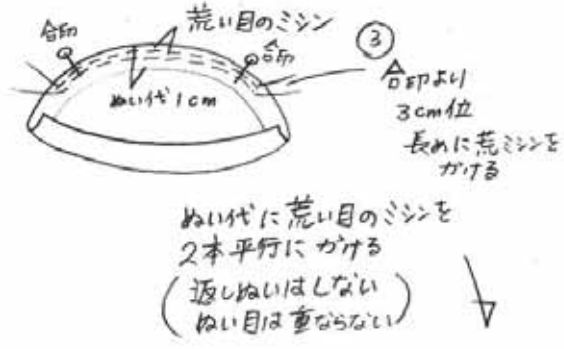 荒い目のミシン
合印
合印
ぬい代1cm
③
合印より
3cm位
長めに荒ミシンを
かける
ぬい代に荒い目のミシンを
2本平行にかける
(返しぬいはしない
ぬい目は重ならない)